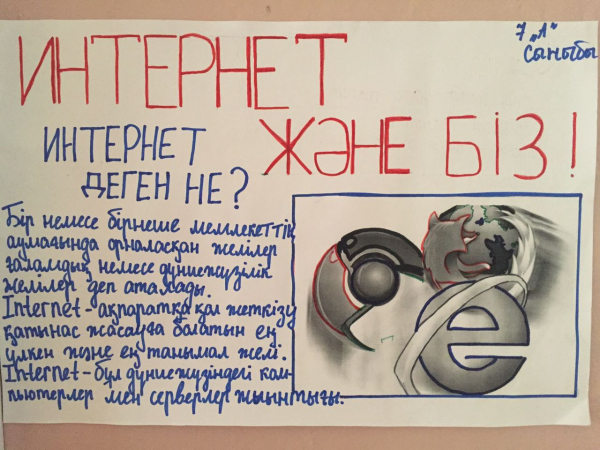 7 „А"
сыныбы
ИНТЕРНЕТ
ЖӘНЕ БІЗ!
ИНТЕРНЕТ
ДЕГЕН НЕ?
Бір немесе бірнеше мемлекеттің
аумағында орналасқан желілер
ғаламдық немесе дүниежүзілік
желілер деп аталады.
Internet - ақпаратқа қол жеткізу
қатынас жасауға болатын ең
үлкен және ең танымал желі.
Internet - бұл дүниежүзіндегі ком-
пьютерлер мен серверлер жиынтығы.